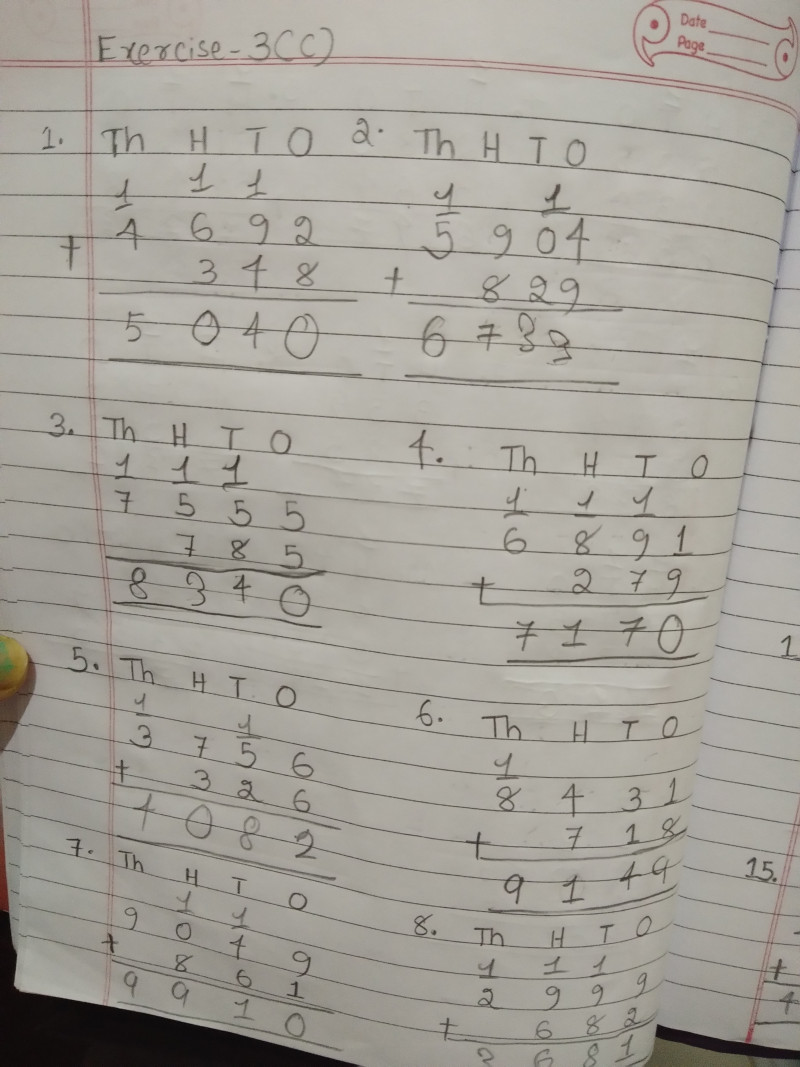 Date
Page
Exercise - 3(C)
1. Th H T O
1 1 1
4 6 9 2
+ 3 4 8
5 0 4 0
2. Th H T O
1 1
5 9 0 4
+ 8 2 9
6 7 3 3
3. Th H T O
1 1 1
7 5 5 5
7 8 5
8 3 4 0
4. Th H T O
1 1 1
6 8 9 1
+ 2 7 9
7 1 7 0
5. Th H T O
1 1
3 7 5 6
+ 3 2 6
4 0 8 2
6. Th H T O
1
8 4 3 1
+ 7 1 8
9 1 4 9
7. Th H T O
1 1
9 0 4 9
+ 8 6 1
9 9 1 0
8. Th H T O
1 1 1
2 9 9 9
+ 6 8 2
3 6 8 1
1
15.
+
4